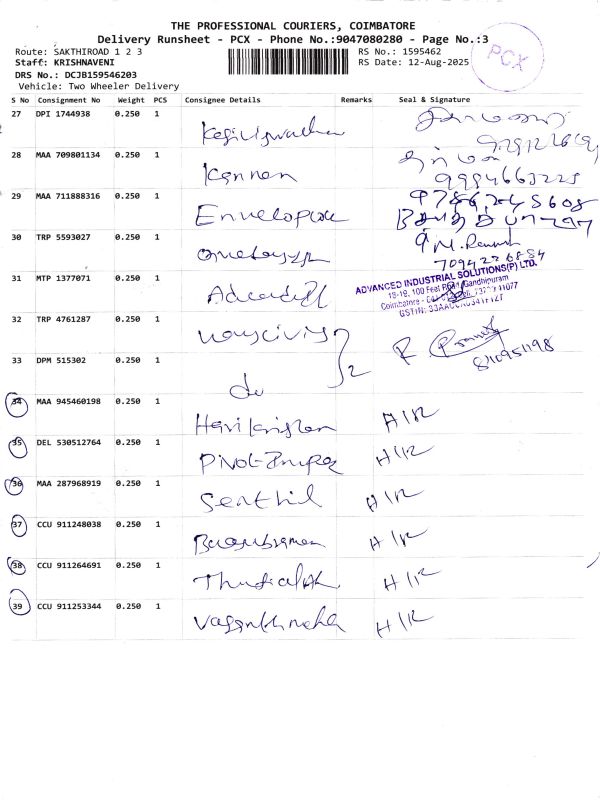 THE PROFESSIONAL COURIERS, COIMBATORE
Delivery Runsheet - PCX - Phone No.:9047080280 - Page No.:3
Route: SAKTHIROAD 1 2 3
Staff: KRISHNAVENI
DRS No.: DCJB159546203
Vehicle: Two Wheeler Delivery
RS No.: 1595462
RS Date: 12-Aug-2025
PCX
S No Consignment No Weight PCS Consignee Details Remarks Seal & Signature
27 DPI 1744938 0.250 1
28 MAA 709801134 0.250 1 Kannan 9994663225
29 MAA 711888316 0.250 1
30 TRP 5593027 0.250 1
7094226884
31 MTP 1377071 0.250 1
ADVANCED INDUSTRIAL SOLUTIONS(P) LTD.
100 Feet Gandhipuram
Coimbatore
GSTIN:
32 TRP 4761287 0.250 1
2
33 DPM 515302 0.250 1 do
34 MAA 945460198 0.250 1 Harikrishan H/R
35 DEL 530512764 0.250 1 H/R
36 MAA 287968919 0.250 1 Senthil H/R
37 CCU 911248038 0.250 1 H/R
38 CCU 911264691 0.250 1 H/R
39 CCU 911253344 0.250 1 H/R